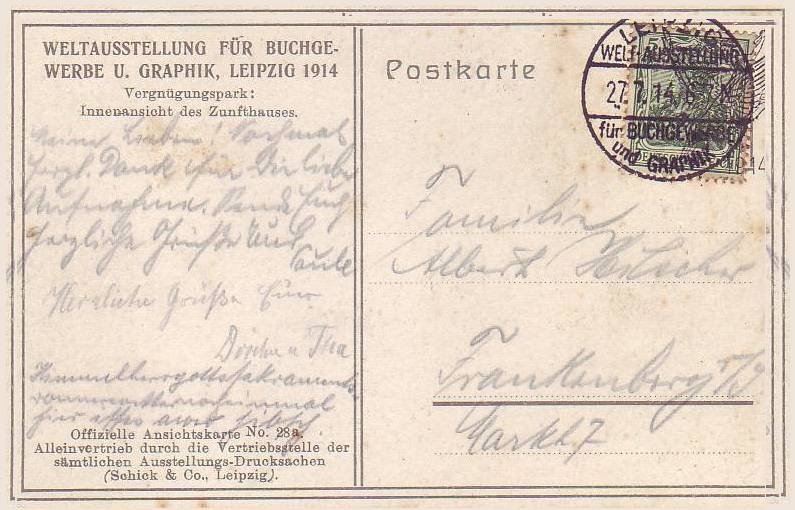 WELTAUSSTELLUNG FÜR BUCHGE-
WERBE U. GRAPHIK, LEIPZIG 1914
Vergnügungspark:
Innenansicht des Zunfthauses.
Meine Lieben! Nochmals
herzl. Dank für Die liebe
Aufnahme. Sende Euch
herzliche Grüße Eure
Herzliche Grüße Eure
hier
Offizielle Ansichtskarte No. 28a.
Alleinvertrieb durch die Vertriebsstelle der
sämtlichen Ausstellungs-Drucksachen
(Schick & Co., Leipzig).
Postkarte
LEIPZIG
WELT-AUSSTELLUNG
27.7.14. 6-7 N.
für BUCHGEWERBE
und GRAPHIK
Familie
Albert
Frankenberg i/S
Markt 7